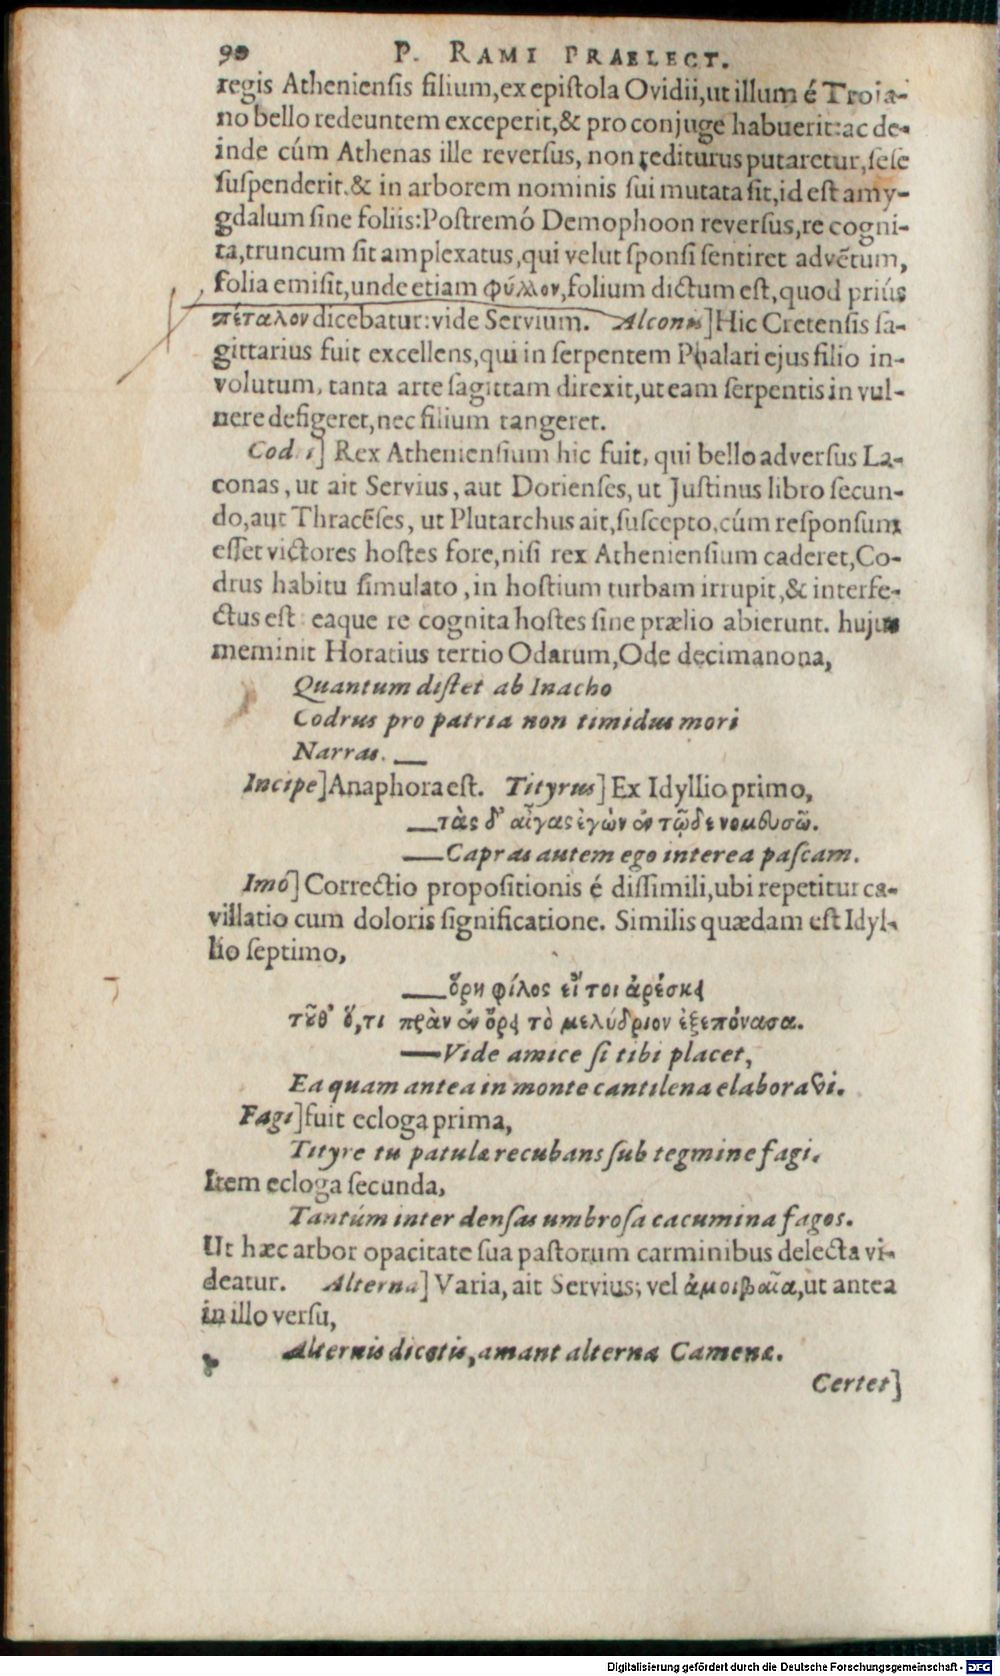 90 P. RAMI PRAELECT.
regis Atheniensis filium, ex epistola Ovidii, ut illum é Troia-
no bello redeuntem exceperit, & pro conjuge habuerit: ac de-
inde cúm Athenas ille reversus, non rediturus putaretur, sese
suspenderit. & in arborem nominis sui mutata sit, id est amy-
gdalum sine foliis: Postremó Demophoon reversus, re cogni-
ta, truncum sit amplexatus, qui velut sponsi sentiret advētum,
folia emisit, unde etiam φύλλον, folium dictum est, quod priús
πέταλον dicebatur: vide Servium. Alconis] Hic Cretensis sa-
gittarius fuit excellens, qui in serpentem Phalari ejus filio in-
volutum, tanta arte sagittam direxit, ut eam serpentis in vul-
nere defigeret, nec filium tangeret.
Codri] Rex Atheniensium hic fuit, qui bello adversus La-
conas, ut ait Servius, aut Dorienses, ut Justinus libro secun-
do, aut Thracēses, ut Plutarchus ait, suscepto, cúm responsum
esset victores hostes fore, nisi rex Atheniensium caderet, Co-
drus habitu simulato, in hostium turbam irrupit, & interfe-
ctus est: eaque re cognita hostes sine prælio abierunt. hujus
meminit Horatius tertio Odarum, Ode decimanona,
Quantum distet ab Inacho
Codrus pro patria non timidus mori
Narras. —
Incipe] Anaphora est. Tityrus] Ex Idyllio primo,
—τὰς δ' αἶγας ἐγὼν ἐν τῷδε νομευσῶ.
—Capras autem ego interea pascam.
Imó] Correctio propositionis é dissimili, ubi repetitur ca-
villatio cum doloris significatione. Similis quædam est Idyl-
lio septimo,
—ὅρη φίλος εἴ τοι ἀρέσκει
τοῦθ' ὅ, τι πρὰν ἐν ὄρει τὸ μελύδριον ἐξεπόνασα.
—Vide amice si tibi placet,
Ea quam antea in monte cantilena elaboravi.
Fagi] fuit ecloga prima,
Tityre tu patulæ recubans sub tegmine fagi.
Item ecloga secunda,
Tantúm inter densas umbrosa cacumina fagos.
Ut hæc arbor opacitate sua pastorum carminibus delecta vi-
deatur. Alterna] Varia, ait Servius; vel ἀμοιβαῖα, ut antea
in illo versu,
Alternis dicetis, amant alterna Camenæ.
Certet]
Digitalisierung gefördert durch die Deutsche Forschungsgemeinschaft - DFG